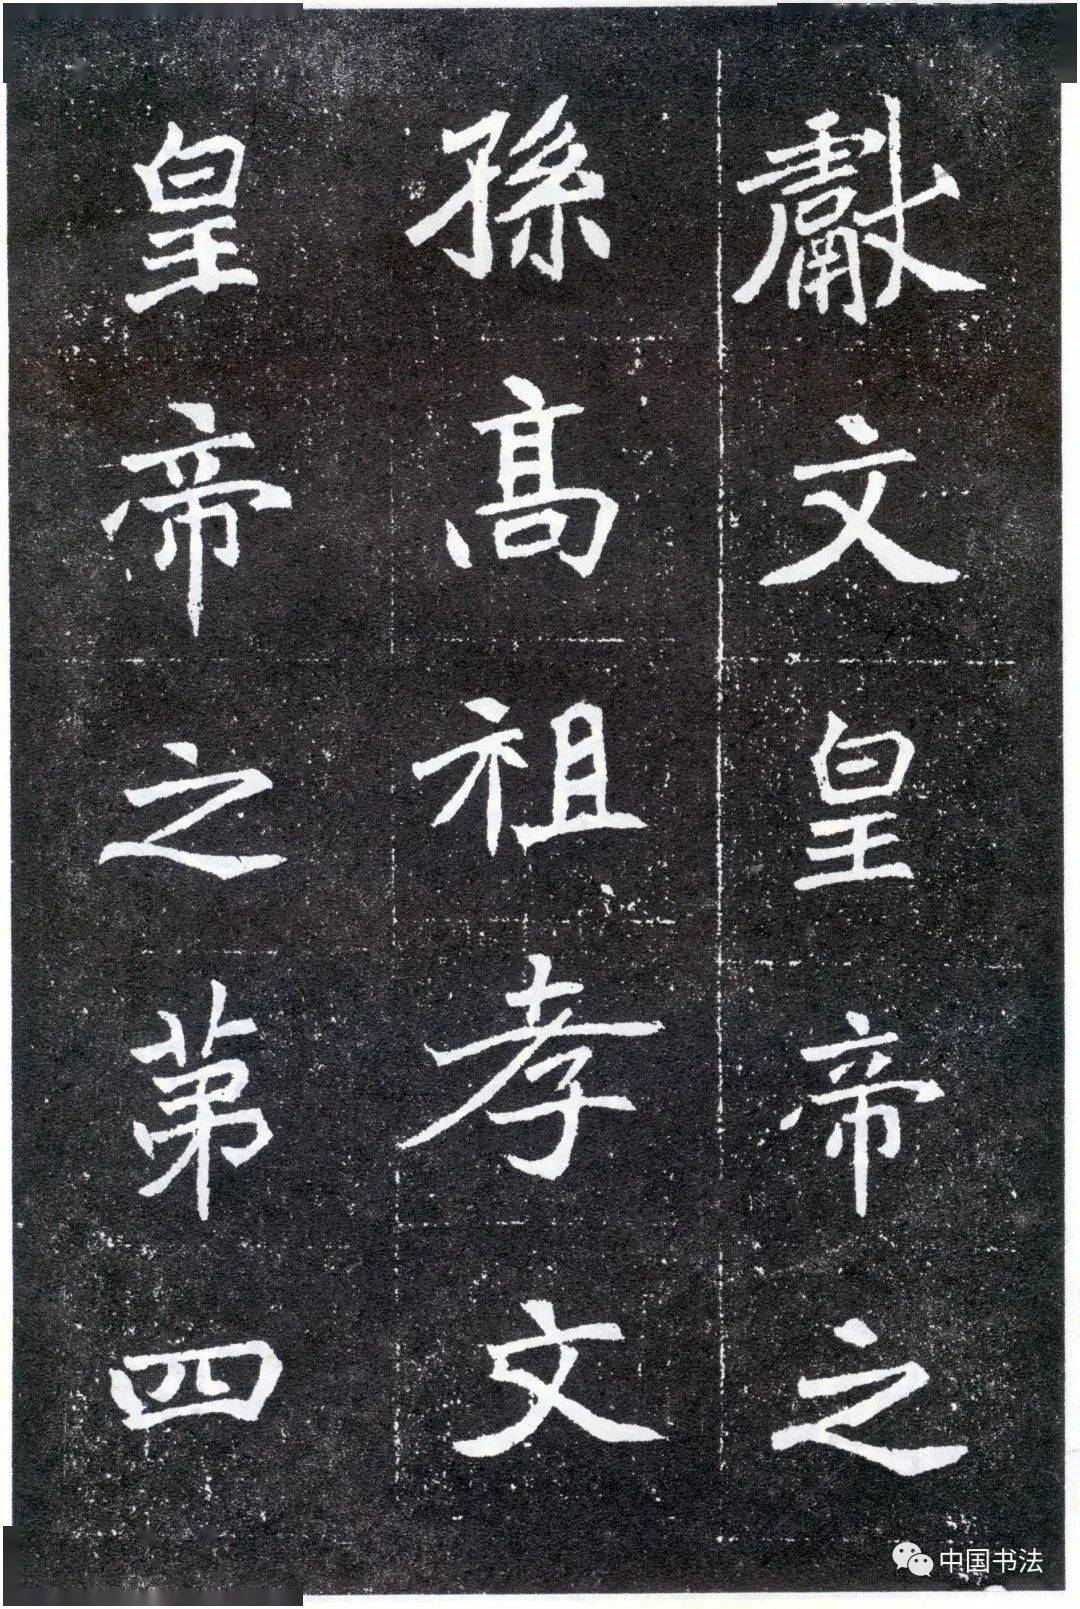 獻文皇帝之
孫高祖孝文
皇帝之第四
中国书法